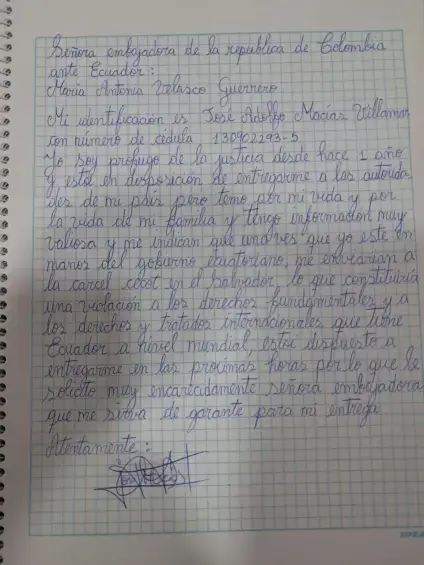 Señora embajadora de la republica de Colombia
ante Ecuador:
Maria Antonia Velasco Guerrero
Mi identificación es José Adolfo Macías Villamar
con número de cédula 130902293-5
Yo soy profugo de la justicia desde hace 1 año
y estoi en disposición de entregarme a las autorida-
des de mi pais pero temo por mi vida y por
la vida de mi familia y tengo información muy
valiosa y me indican que una ves que yo este en
manos del gobierno ecuatoriano, me enviarian a
la carcel cecot en el Salvador lo que constituiria
una violación a los derechos fundamentales y a
los derechos y tratados internacionales que tiene
Ecuador a nivel mundial, estoc dispuesto a
entregarme en las procimas horas por lo que le
solicito muy encarecidamente señora embajadora
que me sirva de garante para mi entrega
Atentamente: